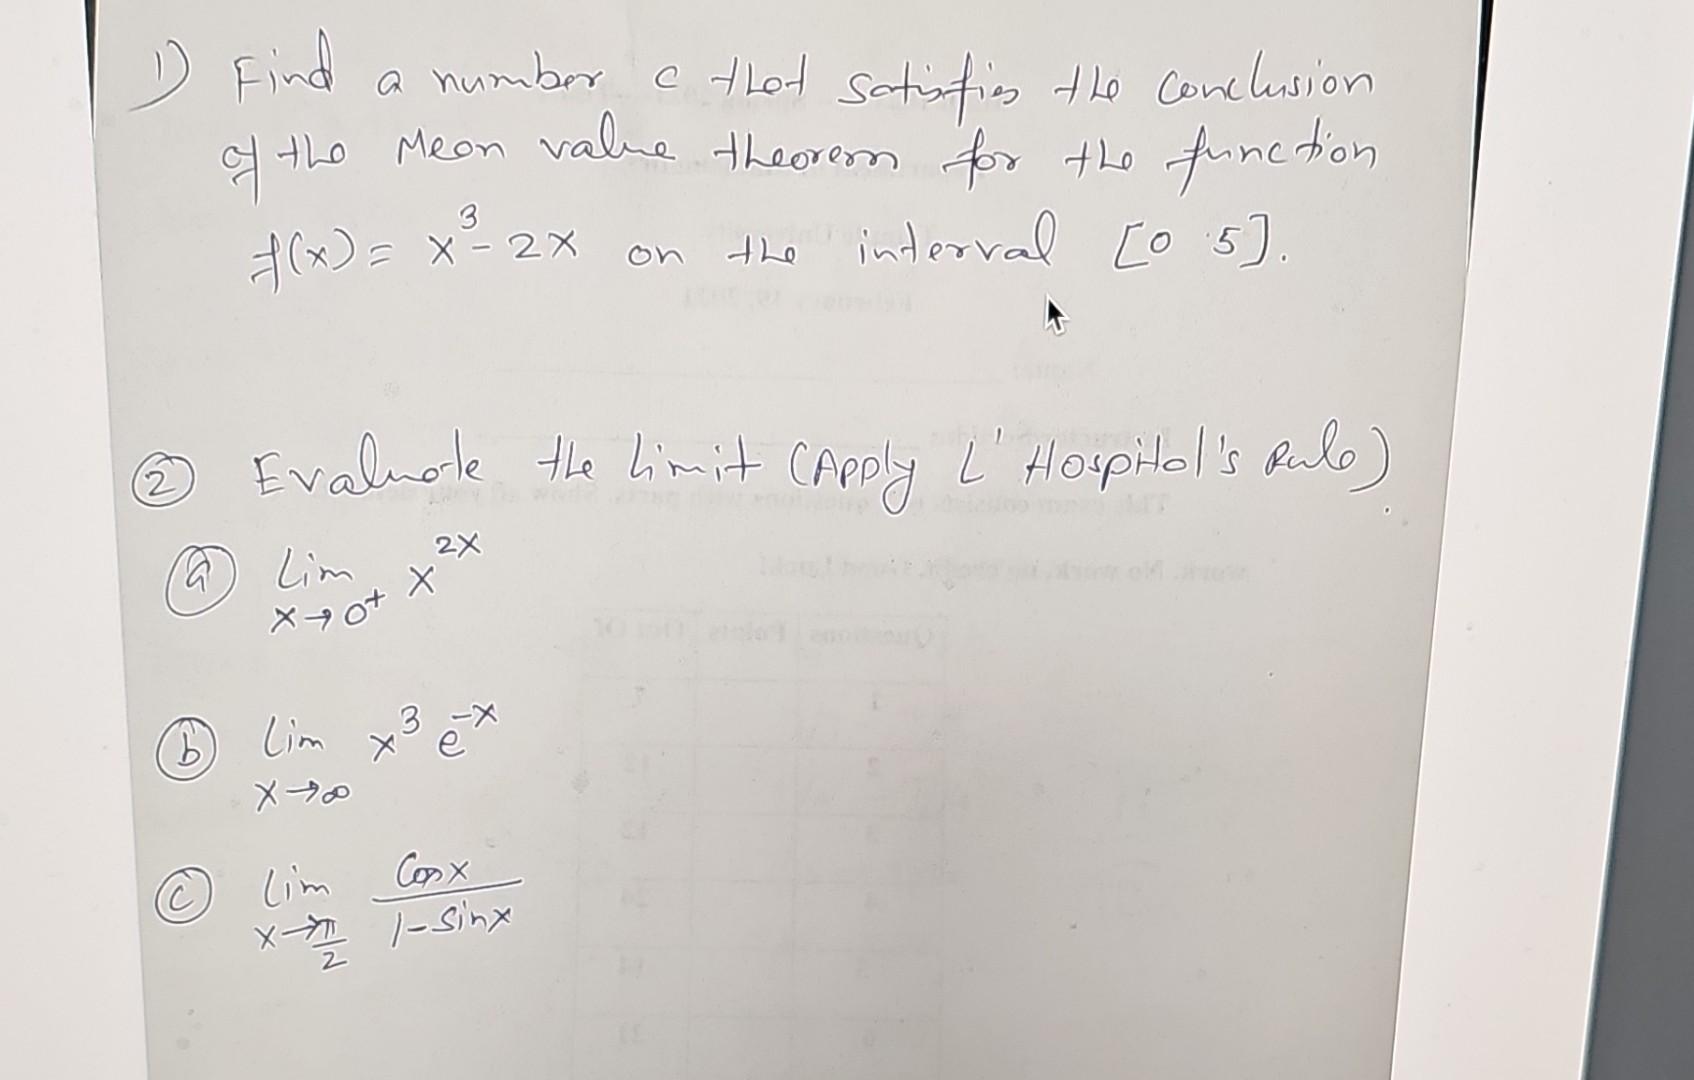 1) Find a number c that satisfies the conclusion
of the Mean value theorem for the function
f(x) = x³ - 2x on the interval [0 5].
② Evaluate the limit (Apply L' Hospital's Rule).
ⓐ Lim x→0⁺ x^2x
ⓑ Lim x→∞ x³ e^-x
ⓒ Lim x→π/2 Cosx / 1-Sinx